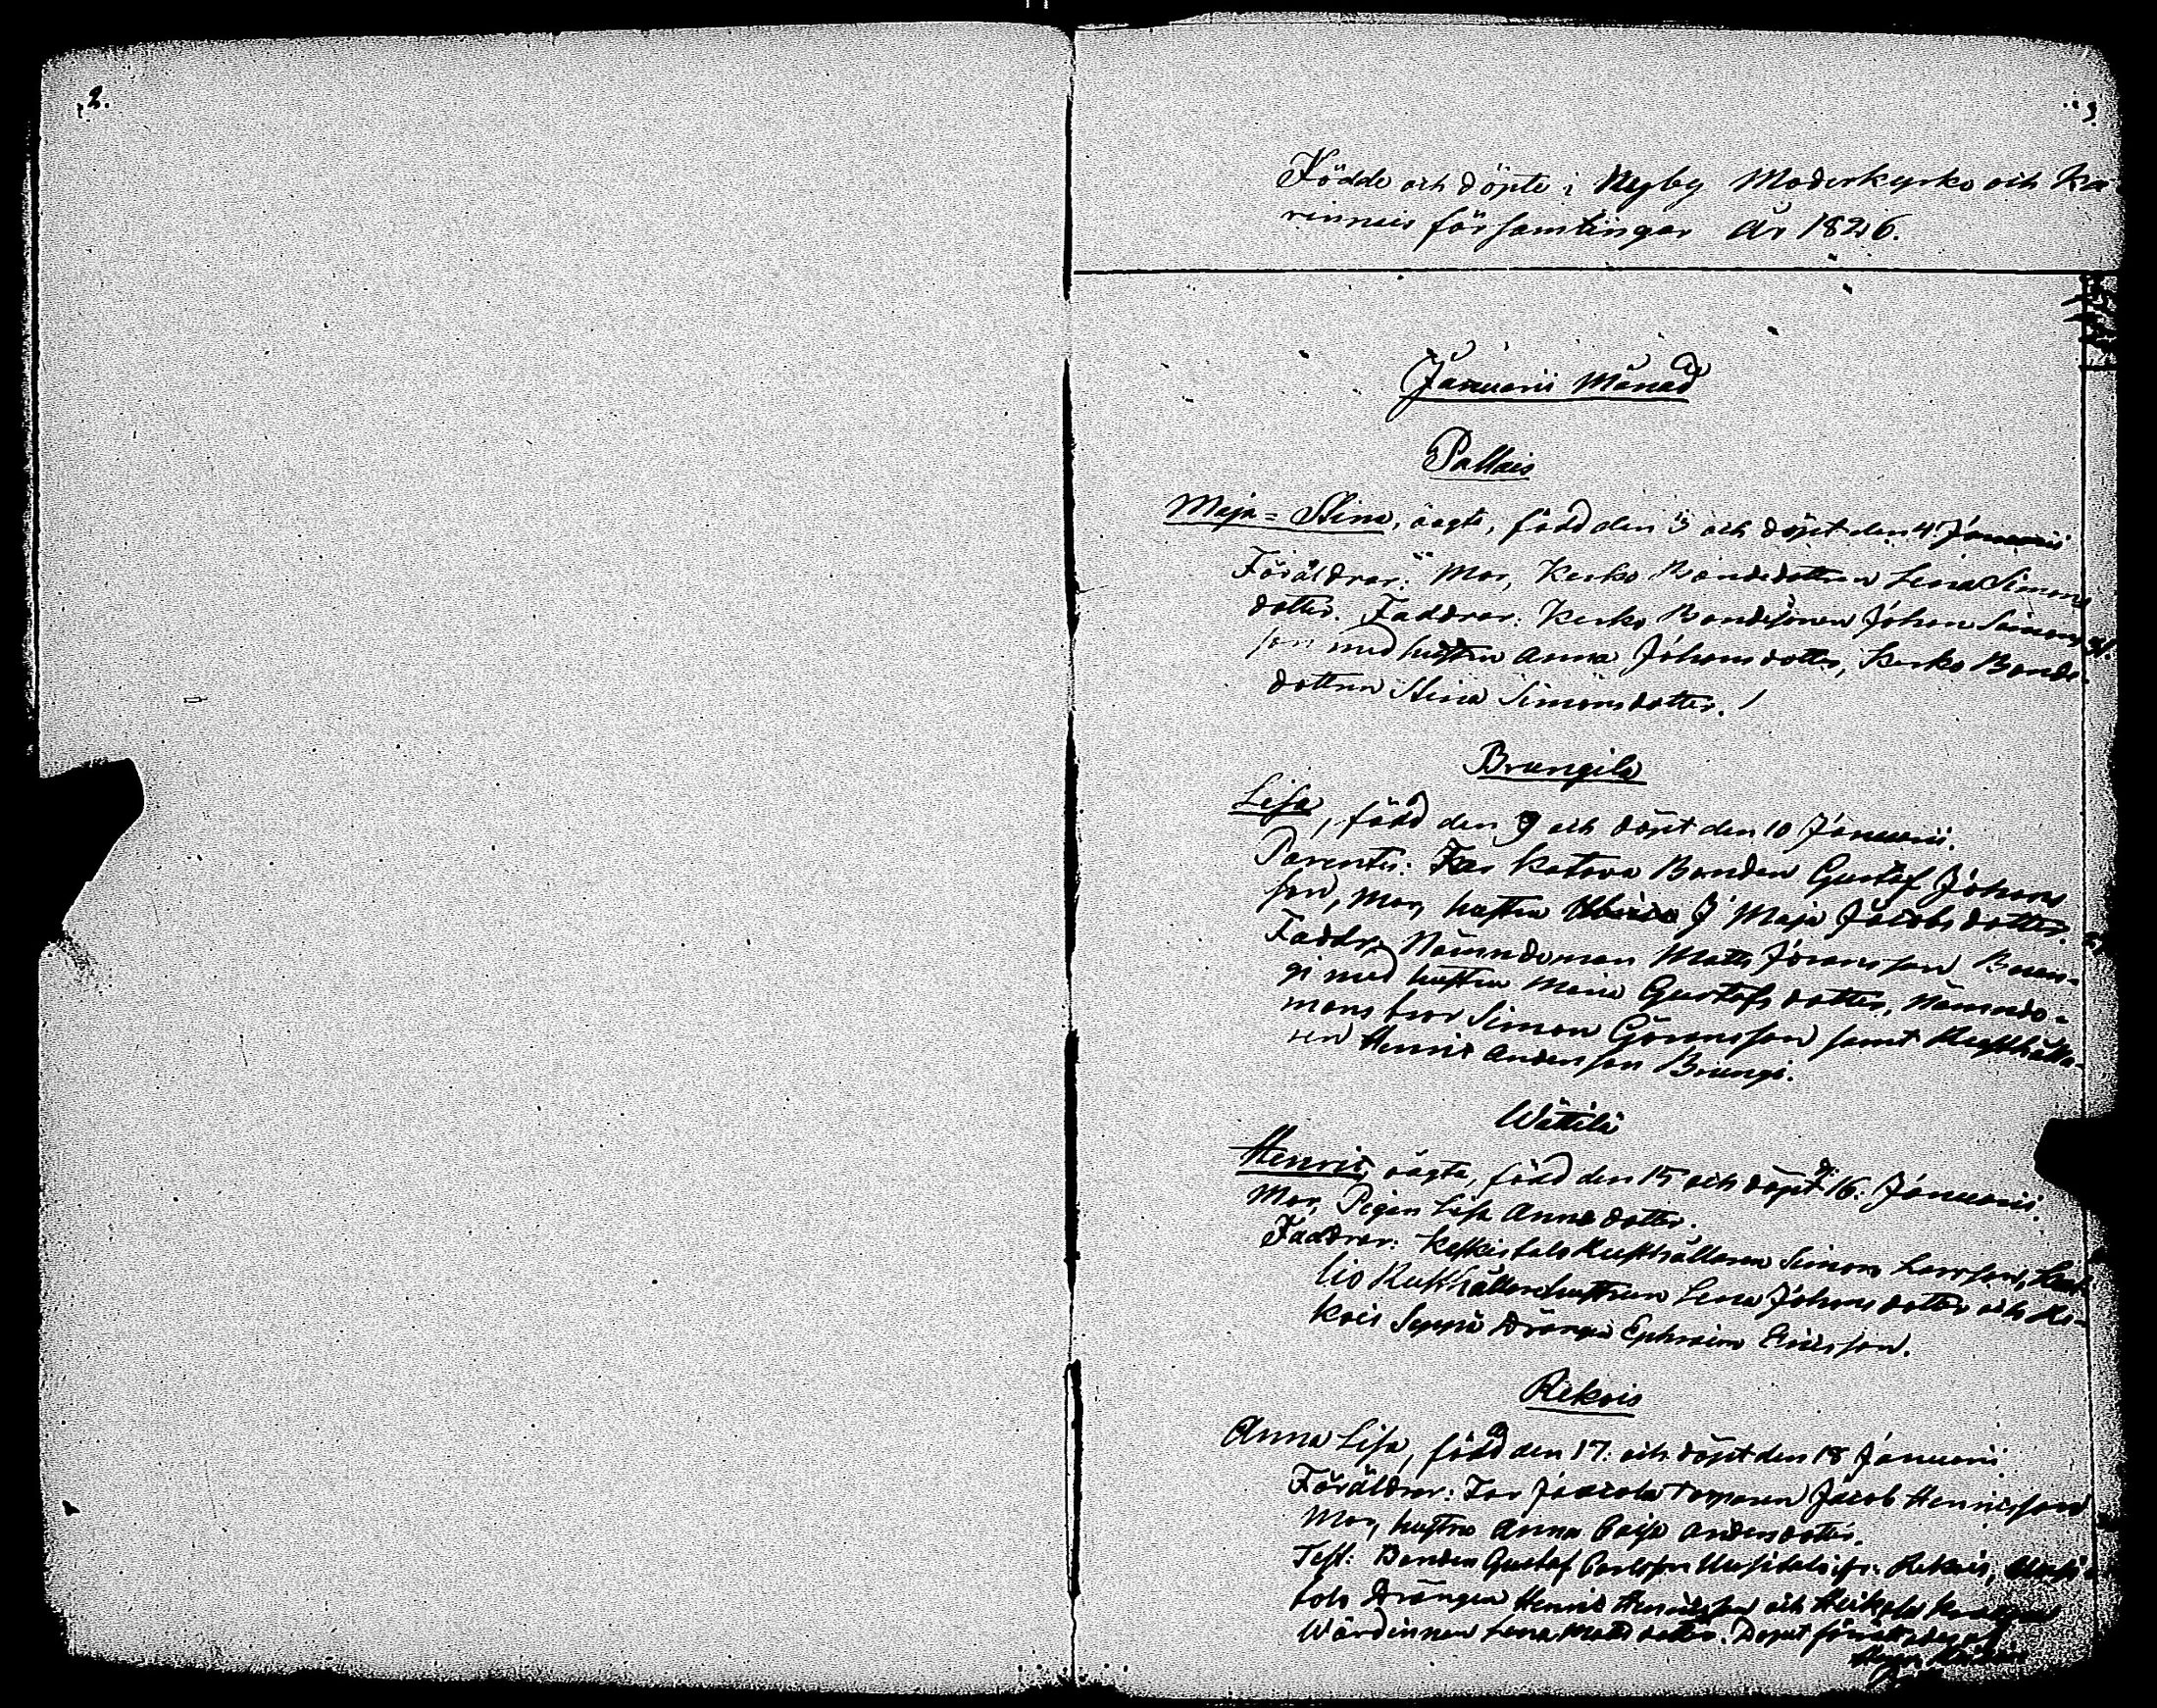 2.
3.
Födde och döpte i Nyby Moderkyrko och Ka
rinneis församlingar År 1826.
Januarii Månad
Pallais
Maja = Stina, oägta, född den 3 och döpt den 4 Januarii
Föräldrar: Mor, Kesko Bondedottren Lena Simons
dotter. Faddrar: Kesko Bondesonen Johan Simons
son med hustru Anna Johansdotter, Kesko Bonde
dottren Stina Simonsdotter.
Brungila
Lisa, född den 9 och döpt den 10 Januarii.
Parentes: Far Katava Bonden Gustaf Johans
son, Mor, hustru Maja Jacobsdotter.
Faddr. Nämndeman Matts Göransson Brun-
gi med hustru Maria Gustafsdotter, Nämnde-
mans bror Simon Göransson samt Rusthålla-
ren Henric Andersson Brungi.
Wättilä
Henric, oägta, född den 15 och döpt d: 16. Januarii.
Mor, Pigan Lisa Annædotter.
Faddrar: Keskistalo Rusthållaren Simon Larsson,
lio Rusthållarehustrun Lena Johansdotter och Re-
kois Seppä Drängen Ephraim Ericsson.
Rekois
Anna Lisa, född den 17. och döpt den 18 Januarii
Föräldrar: Far Torparen Jacob Henricsson
Mor, hustru Anna Caisa Andersdotter.
Test: Bonden Gustaf Carlsson Uusitalo ifr. Rekois,
talo Drängen Henric Henricsson och Heikola
Wärdinnan Lena Mattsdotter. Dopet förrättades af